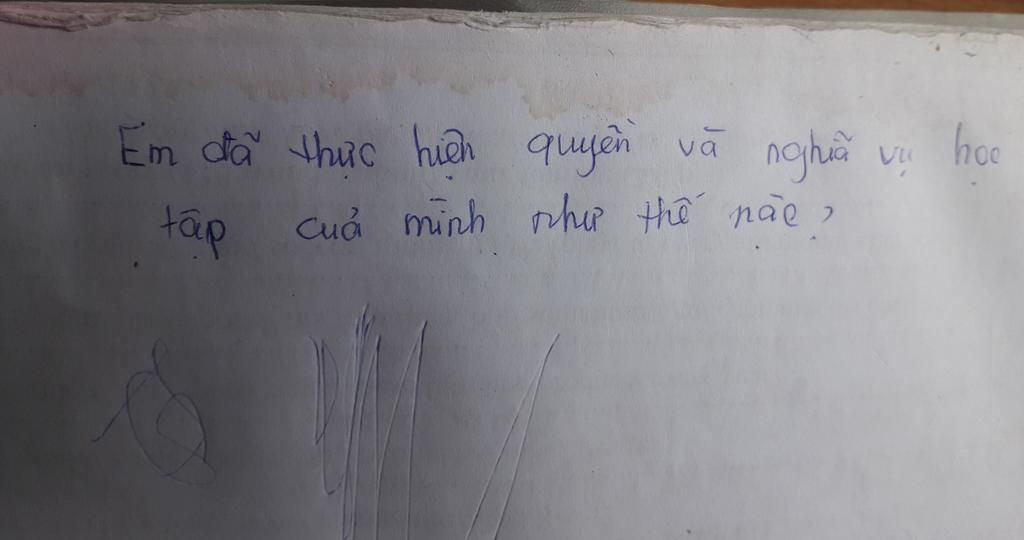 Em đã thực hiện quyền và nghĩa vụ học
tập cuả mình như thế nào?